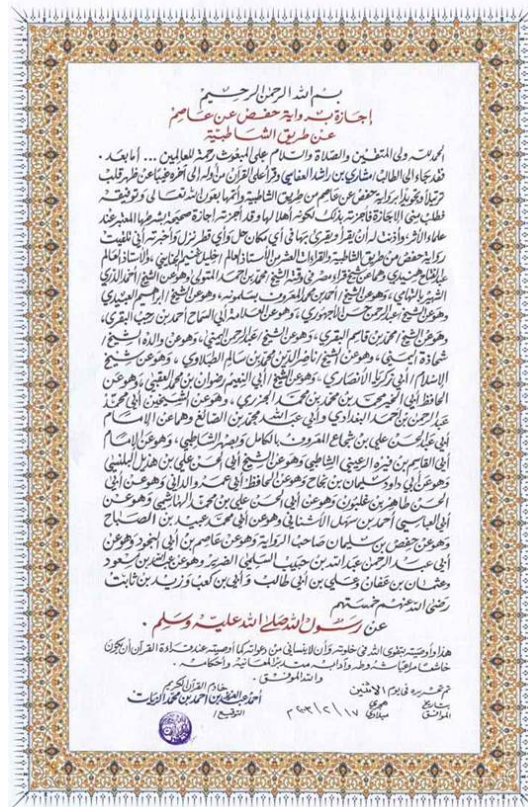 بسم الله الرحمن الرحيم
إجازة برواية حفص عن عاصم
عن طريق الشاطبية
الحمد لله ولي المتقين والصلاة والسلام على المبعوث رحمة للعالمين ... أما بعد .
فقد جاء إلي الطالب / مشاري بن راشد العفاسي وقرأ علي القرآن من أوله إلى آخره غيبا عن ظهر قلب
ترتيلا وتجويدا برواية حفص عن عاصم من طريق الشاطبية وأتمها بعون الله تعالى وتوفيقه
فطلب مني الإجازة فأجزته بذلك لكونه أهلا لها وقد أجزته إجازة صحيحة بشرطها المعتبر عند
علماء الأثر وأذنت له أن يقرأ ويقرئ بها في أي مكان حل وأي قطر نزل وأخبرته أني تلقيت
رواية حفص من طريق الشاطبية والقراءات العشر من الأستاذ العالم / خليل غنيم الجنايني ، والأستاذ العالم
عبد الفتاح هنيدي وهما عن شيخ قراء مصر في وقته الشيخ / محمد بن أحمد المتولي وهو عن الشيخ / أحمد الدري
الشهير بالتهامي ، وهو عن الشيخ / أحمد بن محمد المعروف بسلمونه ، وهو عن الشيخ / إبراهيم العبيدي
وهو عن الشيخ / عبد الرحمن حسن الأجهوري ، وهو عن العلامة / أبي السماح أحمد بن رجب البقري ،
وهو عن الشيخ / محمد بن قاسم البقري ، وهو عن الشيخ / عبد الرحمن اليمني ، وهو عن والده الشيخ /
شحاذة اليمني ، وهو عن الشيخ / ناصر الدين محمد بن سالم الطبلاوي ، وهو عن شيخ
الإسلام / أبي زكريا الأنصاري ، وهو عن الشيخ / أبي النعيم رضوان بن محمد العقبي ، وهو عن
الحافظ أبي الخير محمد بن محمد بن محمد الجزري ، وهو عن الشيخين أبي محمد
عبد الرحمن بن أحمد البغدادي وأبي عبد الله محمد بن الصائغ وهما عن الإمام
أبي عبد الحسن علي بن شجاع المعروف بالكامل وبصهر الشاطبي ، وهو عن الإمام
أبي القاسم بن فيره الرعيني الشاطبي وهو عن الشيخ أبي الحسن علي بن هذيل البلنسي
وهو عن أبي داود سليمان بن نجاح وهو عن الحافظ / أبي عمرو الداني وهو عن أبي
الحسن طاهر بن غلبون وهو عن أبي الحسن علي بن محمد الهاشمي وهو عن
أبي العباسي أحمد بن سهل الأشناني وهو عن أبي محمد عبيد بن الصباح
وهو عن حفص بن سليمان صاحب الرواية وهو عن عاصم بن أبي النجود وهو عن
أبي عبد الرحمن عبد الله بن حبيب السلمي الضرير وهو عن عبد الله بن مسعود
وعثمان بن عفان وعلي بن أبي طالب وأبي بن كعب وزيد بن ثابت
رضي الله عنهم خمستهم
عن رسول الله صلى الله عليه وسلم .
هذا وأوصيته بتقوى الله في خلوته وأن لا ينساني من دعواته كما أوصيته عند قراءة القرآن أن يكون
خاشعا مراعيا شروطه وآدابه متدبرا لمعانيه وأحكامه .
والله الموفق .
تم تحريره في يوم الاثنين
بتاريخ هجري
الموافق ميلادي ١٧/٢/٢٠٠٣م
خادم القرآن الكريم
أحمد عبد العزيز بن أحمد بن محمد الزيات
التوقيع /